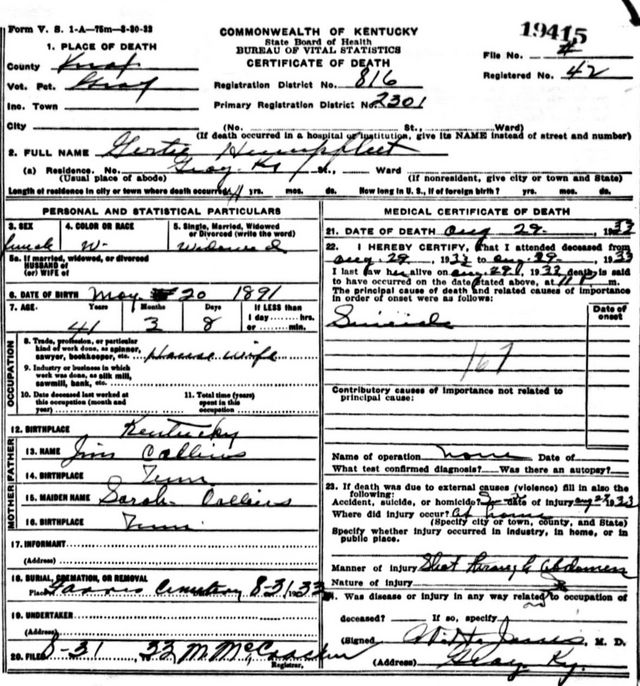 Form V. S. 1-A—75m—8-30-32
COMMONWEALTH OF KENTUCKY
State Board of Health
BUREAU OF VITAL STATISTICS
CERTIFICATE OF DEATH
19415
1. PLACE OF DEATH
County Knox
File No. #
Vot. Pct. Gray
Registration District No. 816
Registered No. 42
Inc. Town
Primary Registration District No. 2301
City (No. St., Ward)
(If death occurred in a hospital or institution, give its NAME instead of street and number)
2. FULL NAME Gertie Humpfleet
(a) Residence. No. Gray, Ky St., Ward
(Usual place of abode) (If nonresident, give city or town and State)
Length of residence in city or town where death occurred yrs. mos. ds. How long in U. S., if of foreign birth? yrs. mos. ds.
PERSONAL AND STATISTICAL PARTICULARS
3. SEX
female
4. COLOR OR RACE
W
5. Single, Married, Widowed or Divorced (write the word)
Widowed
5a. If married, widowed, or divorced
HUSBAND of
(or) WIFE of
6. DATE OF BIRTH May 20 1891
7. AGE Years Months Days If LESS than
1 day hrs.
or min.
41 3 8
OCCUPATION
8. Trade, profession, or particular kind of work done, as spinner, sawyer, bookkeeper, etc. House Wife
9. Industry or business in which work was done, as silk mill, sawmill, bank, etc.
10. Date deceased last worked at this occupation (month and year)
11. Total time (years) spent in this occupation
12. BIRTHPLACE Kentucky
FATHER
13. NAME Jim Collins
14. BIRTHPLACE Tenn
MOTHER
15. MAIDEN NAME Sarah Collins
16. BIRTHPLACE Tenn
17. INFORMANT
(Address)
18. BURIAL, CREMATION, OR REMOVAL
Place Cemetery 8-31 1933
19. UNDERTAKER
(Address)
20. FILED 8-31 33 M McCracken
Registrar.
MEDICAL CERTIFICATE OF DEATH
21. DATE OF DEATH Aug 29, 1933
22. I HEREBY CERTIFY, that I attended deceased from
Aug 29, 1933 to Aug 29, 1933
I last saw her alive on Aug 29, 1933 death is said
to have occurred on the date stated above, at m.
The principal cause of death and related causes of importance in order of onset were as follows:
Date of onset
Suicide
167
Contributory causes of importance not related to principal cause:
Name of operation none Date of
What test confirmed diagnosis? Was there an autopsy?
23. If death was due to external causes (violence) fill in also the following:
Accident, suicide, or homicide? Date of injury 1933
Where did injury occur? At home
(Specify city or town, county, and State)
Specify whether injury occurred in industry, in home, or in public place.
Manner of injury Shot through Abdomen
Nature of injury
24. Was disease or injury in any way related to occupation of
deceased? If so, specify
(Signed) M. D.
(Address) Gray, Ky.